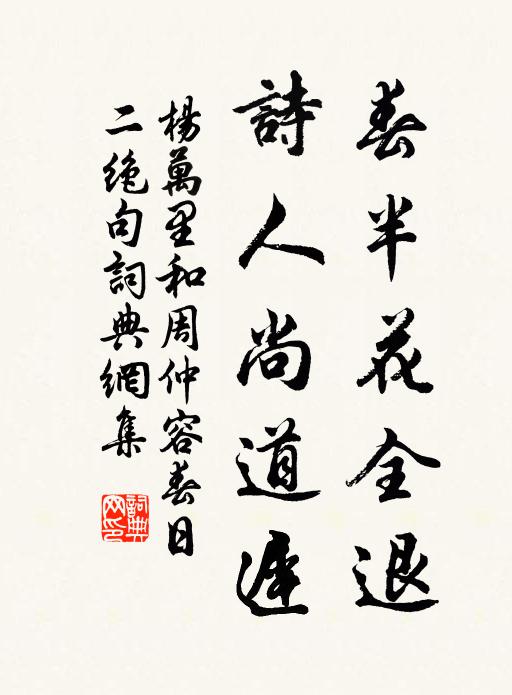 春半花全退
詩人尚道遲
楊萬里和周仲容春日
二絶句詞典網集
詞典
网印